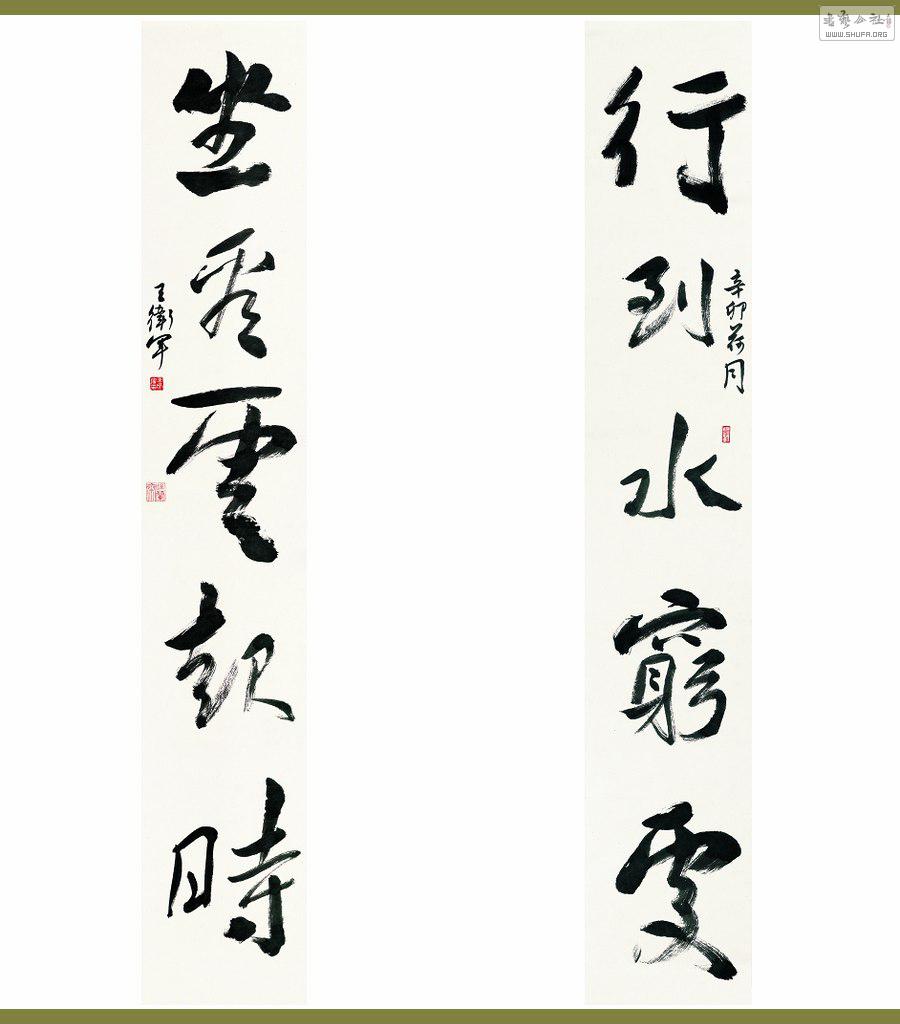 行到水窮處
辛卯荷月
坐看雲起時
王衛軍
書藝公社
WWW.SHUFA.ORG